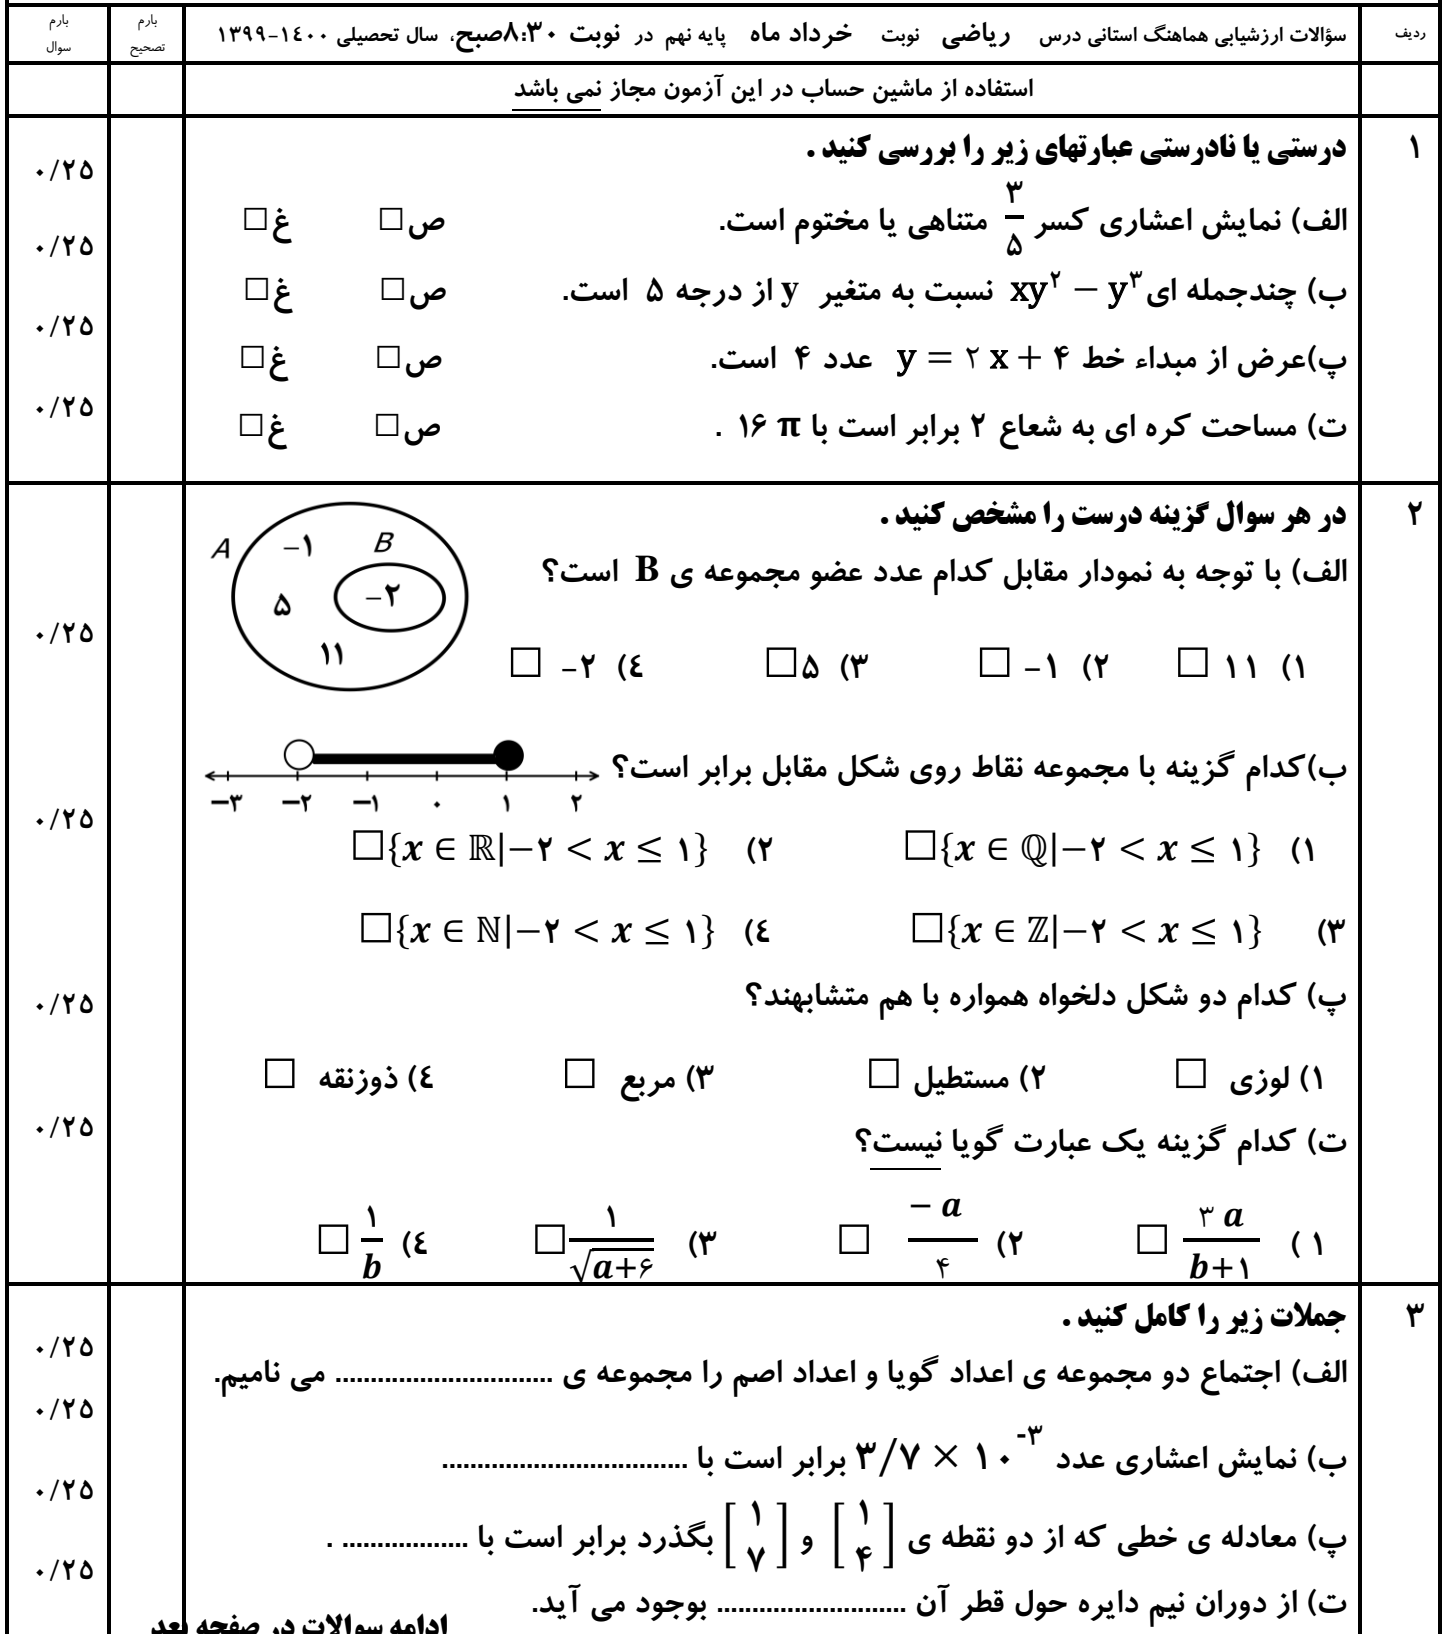 ردیف سؤالات ارزشیابی هماهنگ استانی درس ریاضی نوبت خرداد ماه پایه نهم در نوبت ۸:۳۰صبح، سال تحصیلی ۱۴۰۰-۱۳۹۹ بارم تصحیح بارم سوال
استفاده از ماشین حساب در این آزمون مجاز نمی باشد
۱ درستی یا نادرستی عبارتهای زیر را بررسی کنید .
۰/۲۵
الف) نمایش اعشاری کسر ۳/۵ متناهی یا مختوم است. ص□ غ□
۰/۲۵
ب) چندجمله ای xy² − y³ نسبت به متغیر y از درجه ۵ است. ص□ غ□
۰/۲۵
پ)عرض از مبداء خط y = ۲ x + ۴ عدد ۴ است. ص□ غ□
۰/۲۵
ت) مساحت کره ای به شعاع ۲ برابر است با ۱۶ π . ص□ غ□
۲ در هر سوال گزینه درست را مشخص کنید .
الف) با توجه به نمودار مقابل کدام عدد عضو مجموعه ی B است؟
A −۱ B
۵ −۲
۱۱
۰/۲۵
۱) ۱۱ □ ۲) −۱ □ ۳) ۵ □ ٤) −۲ □
ب)کدام گزینه با مجموعه نقاط روی شکل مقابل برابر است؟
−۳ −۲ −۱ ۰ ۱ ۲
۰/۲۵
۱) {x ∈ ℚ|−۲ < x ≤ ۱}□ ۲) {x ∈ ℝ|−۲ < x ≤ ۱}□
۳) {x ∈ ℤ|−۲ < x ≤ ۱}□ ٤) {x ∈ ℕ|−۲ < x ≤ ۱}□
پ) کدام دو شکل دلخواه همواره با هم متشابهند؟
۰/۲۵
۱) لوزی □ ۲) مستطیل □ ۳) مربع □ ٤) ذوزنقه □
ت) کدام گزینه یک عبارت گویا نیست؟
۰/۲۵
۱ ) ۳ a/b+۱ □ ۲) − a/۴ □ ۳) ۱/√a+۶ □ ٤) ۱/b □
۳ جملات زیر را کامل کنید .
۰/۲۵
الف) اجتماع دو مجموعه ی اعداد گویا و اعداد اصم را مجموعه ی ............................... می نامیم.
۰/۲۵
ب) نمایش اعشاری عدد ۳/۷ × ۱۰⁻³ برابر است با ...................................
۰/۲۵
پ) معادله ی خطی که از دو نقطه ی [۱ ۴] و [۱ ۷] بگذرد برابر است با .................. .
۰/۲۵
ت) از دوران نیم دایره حول قطر آن ........................... بوجود می آید.
ادامه سوالات در صفحه بعد